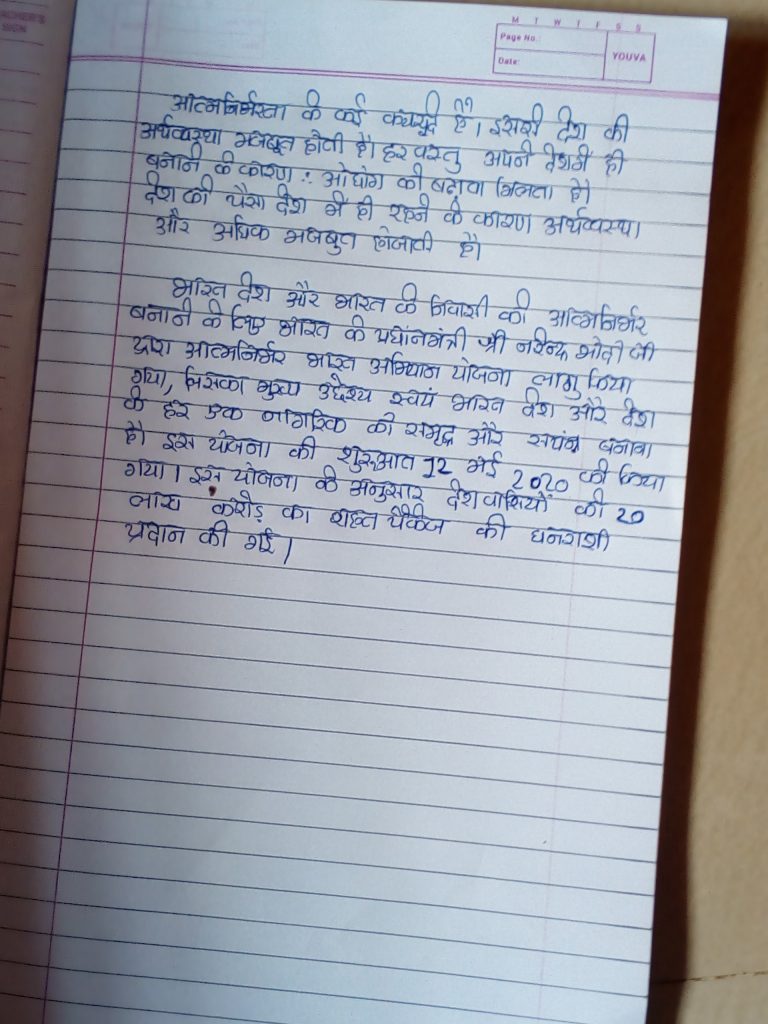 TEACHER'S
SIGN
M T W T F S S
Page No.:
Date:
YOUVA
आत्मनिर्भरता के कई है। इससे देश की
अर्थव्यवस्था मजबूत होती है। हर वस्तु अपने देशमें ही
बनाने के कारण : ओद्योग को बढ़ावा मिलता है।
देश का पैसा देश में ही रहने के कारण अर्थव्यवस्था
और अधिक मजबुत होजाती है।
भारत देश और भारत के निवासी को आत्मनिर्भर
बनाने के लिए भारत के प्रधानमंत्री श्री नरेन्द्र मोदी जी
द्वारा आत्मनिर्भर भारत अभियान योजना लागु किया
गया, जिसका मुख्य उद्देश्य स्वयं भारत देश और देश
के हर एक नागरिक को समृद्ध और सपंन्न बनाना
है। इस योजना की शुरुआत 12 मई 2020 को किया
गया। इस योजना के अनुसार देशवासियों को 20
लाख करोड़ का राहत पैकेज की धनराशी
प्रदान की गई।